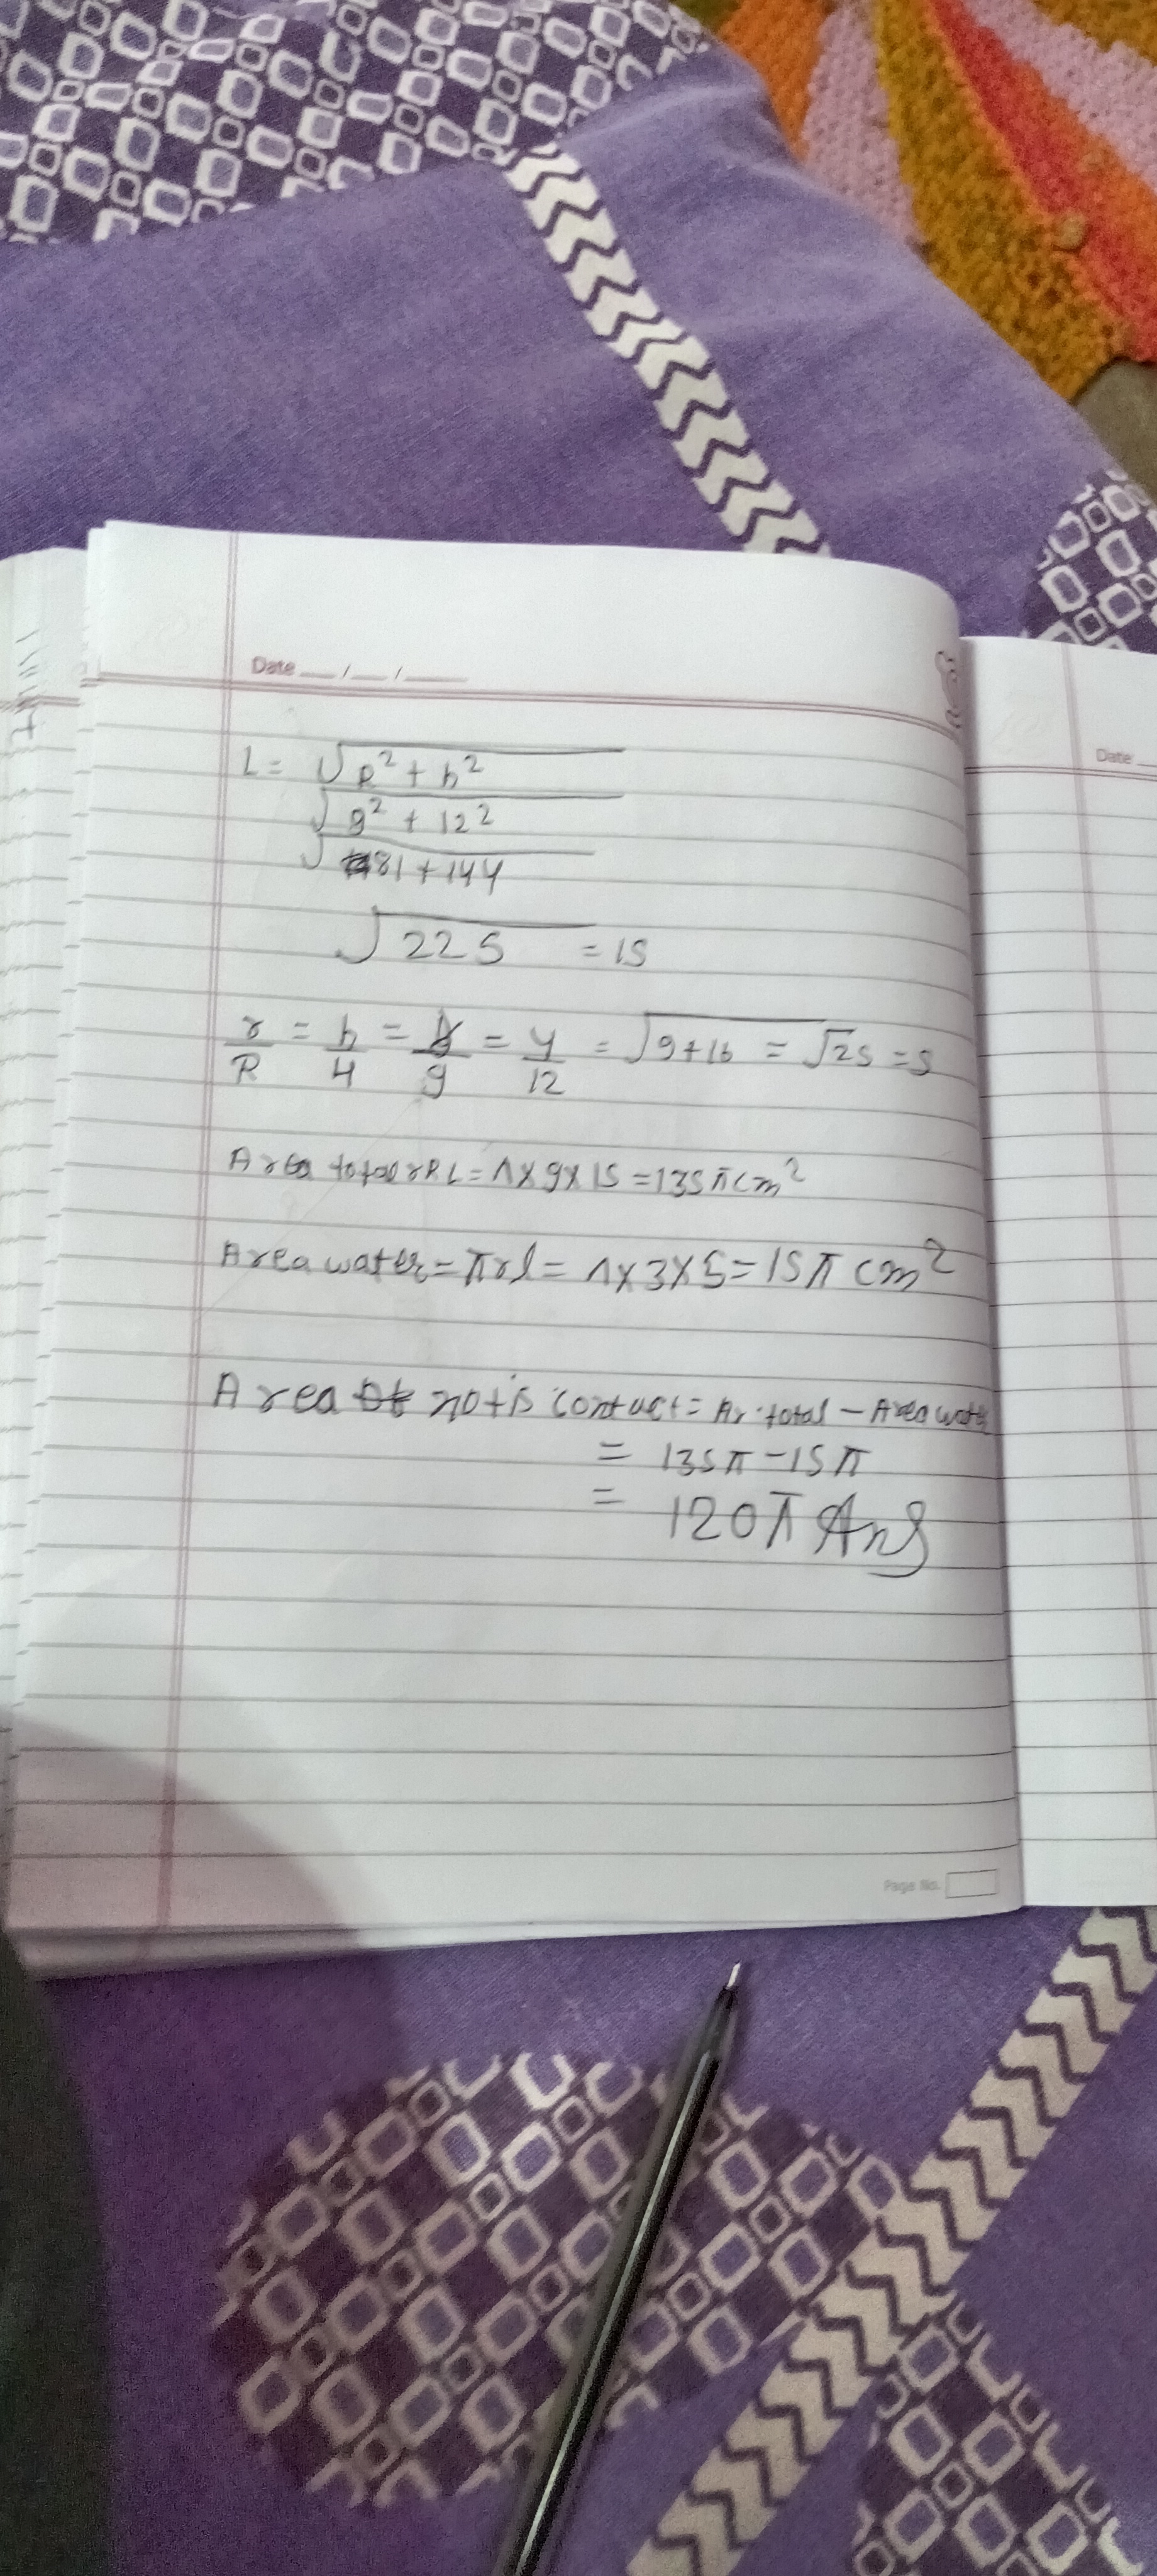 Date __/__/____
L = √R² + h²
√9² + 12²
√81 + 144
√225 = 15
r/R = h/H = r/9 = 4/12 = √9+16 = √25 = 5
Area total πRL = π × 9 × 15 = 135π cm²
Area water = πrl = π × 3 × 5 = 15π cm²
Area not is contact = Ar. total - Area water
= 135π - 15π
= 120π Ans
Page No.
Date